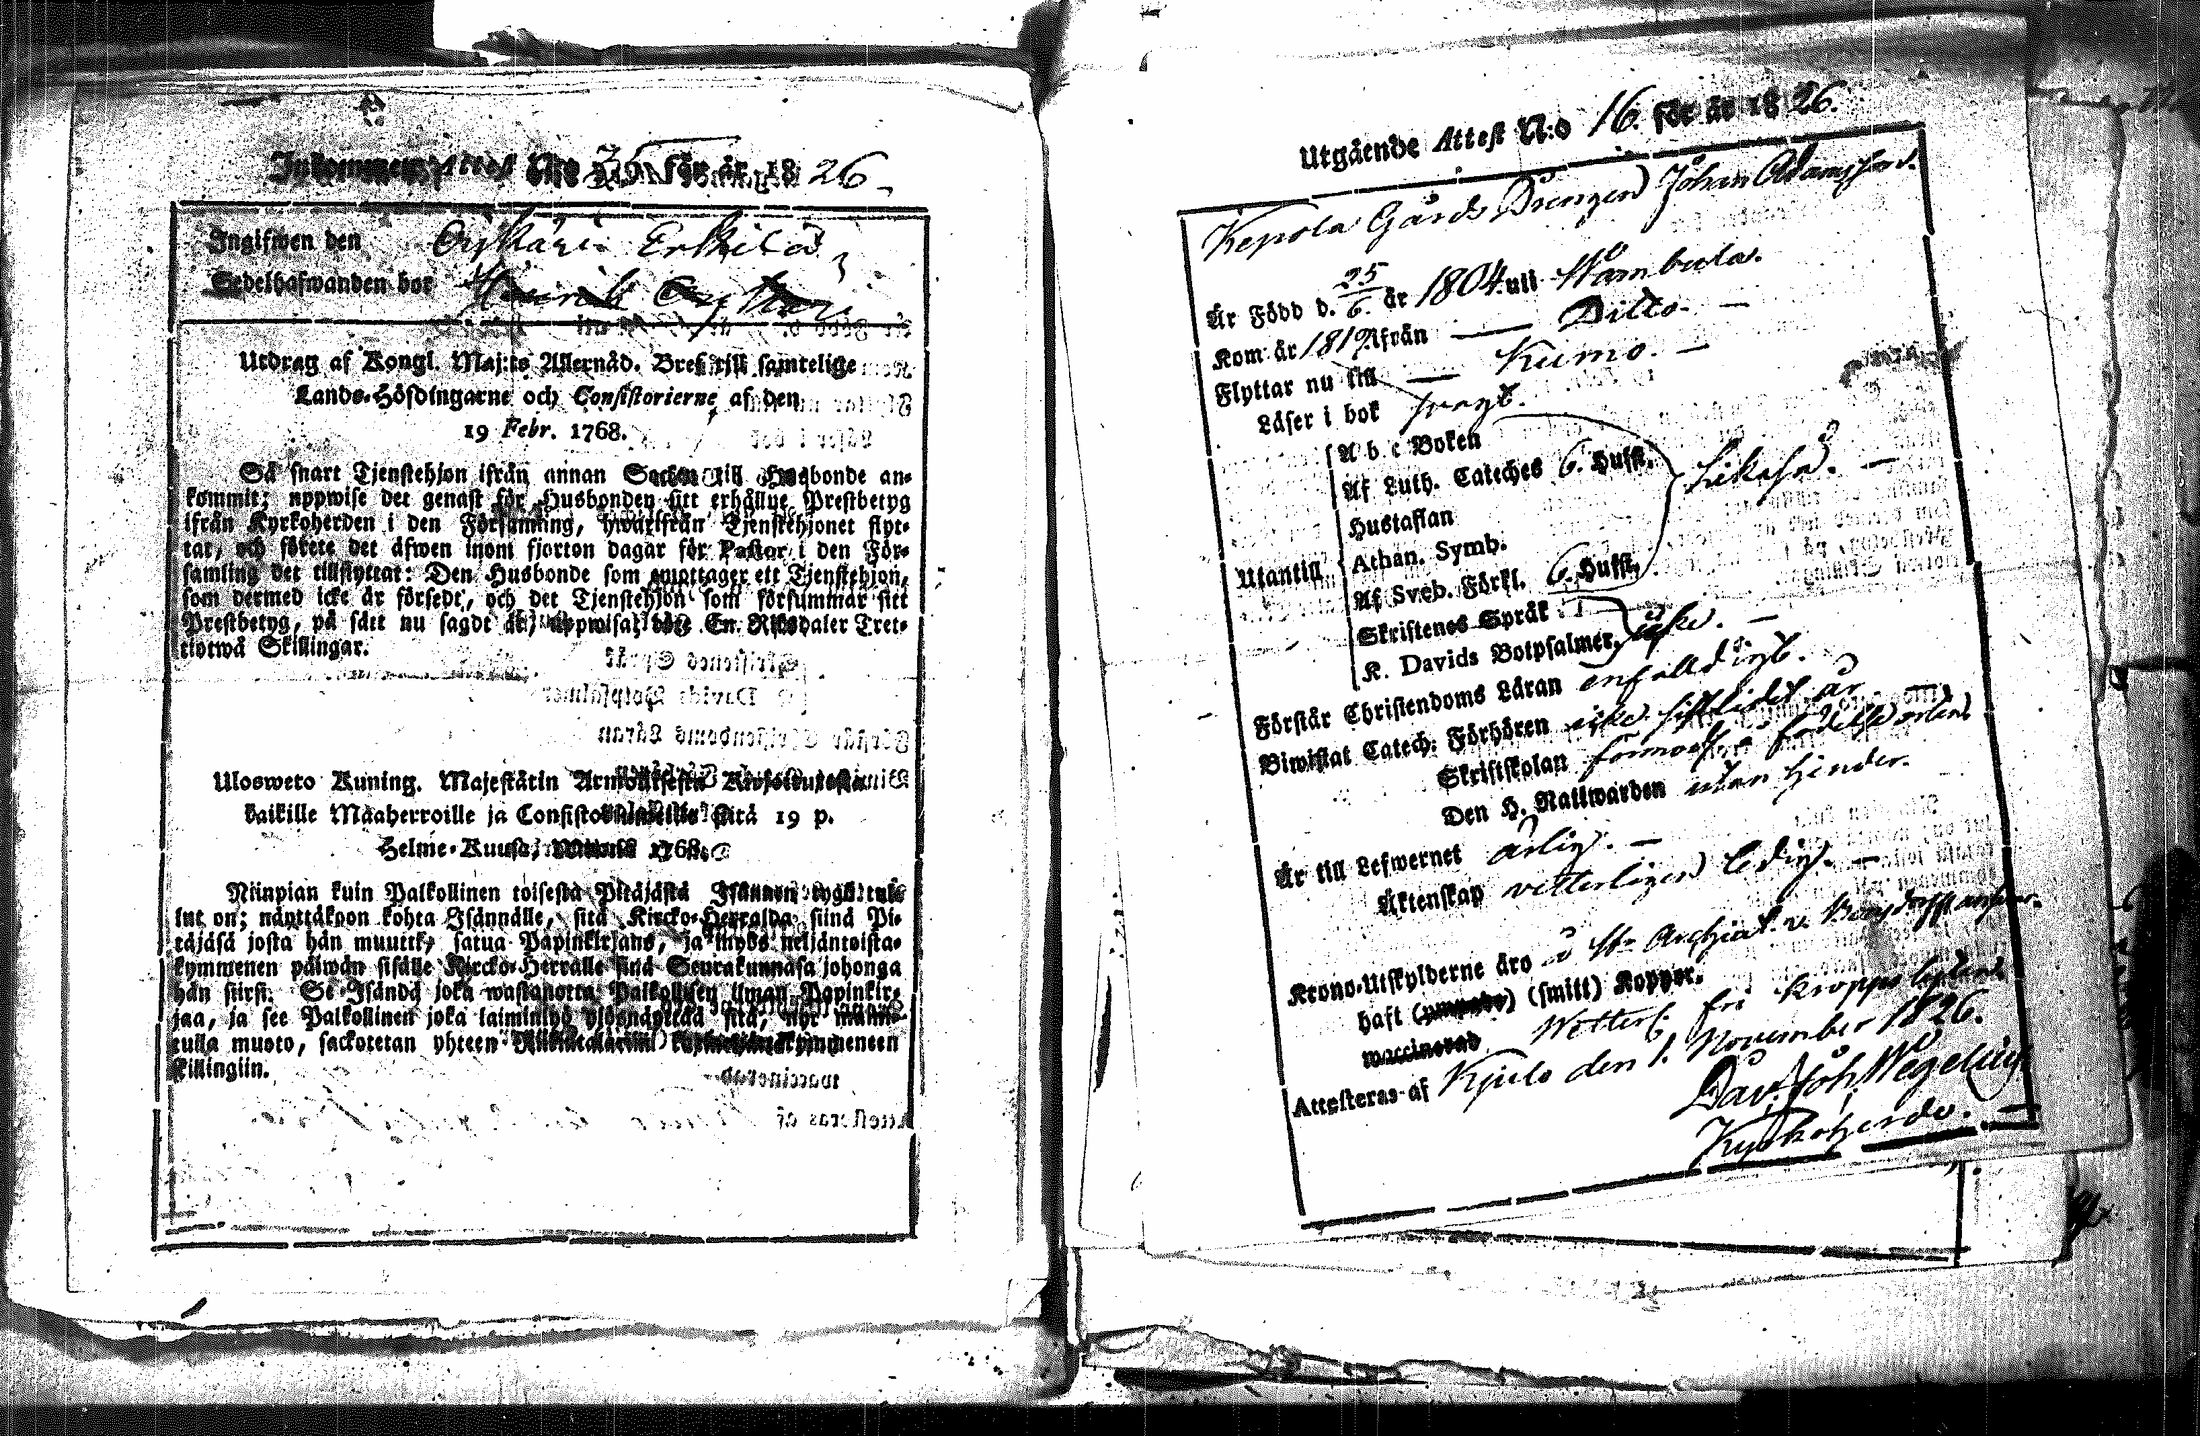 Inkommen Attest N:o för år 1826.
Ingifwen den
Sedelhafwanden bor
Utdrag af Kongl. Maj:ts Allernåd. Bref till samtelige
Lands-Höfdingarne och Consistorierne af den
19 Febr. 1768.
Så snart Tjenstehjon ifrån annan Socken till Husbonde an-
kommit; uppwise det genast för Husbonden sitt erhållne Prestbetyg
ifrån Kyrkoherden i den Församling, hwarifrån Tjenstehjonet flyt-
tat, och förete det äfwen inom fjorton dagar för Pastor i den För-
samling det tillflyttat: Den Husbonde som emottager ett Tjenstehjon,
som dermed icke är försedt, och det Tjenstehjon som försummar sitt
Prestbetyg, på sätt nu sagdt är, uppwisa, böte En Riksdaler Tret-
tiotwå Skillingar.
Ulosweto Kuning. Majestätin Armollisesta
kaikille Maaherroille ja Consistoriumeille sitä 19 p.
Helme-Kuusa, 1768.
Niinpian kuin Palkollinen toisesta Pitäjästä Isännen tygö tul-
lut on; näyttäköön kohta Isännälle, sitä Kircko-Herralda siinä Pi-
täjäsä josta hän muutti, saatua Papinkirjans, ja myös neljäntoista-
kymmenen päiwän sisälle Kircko-Herralle siinä Seurakunnasa johonga
hän siirsi. Se Isändä joka wastaanotta Palkollisen ilman Papinkir-
jaa, ja see Palkollinen joka laiminlyö ylösnäyttää sitä, nyt maini-
tulla muoto, sackotetan yhteen Riikintalariin kymmeneen
killingiin.
Utgående Attest N:o 16. för år 1826.
Kepola Gårds Drengen Johan Adamsson.
Är Född d. 25/6. år 1804. uti Wambula.
Kom år 1819 ifrån — Ditto. —
Flyttar nu till — Kumo. —
Läser i bok svagt.
Utantill
A b c Boken
Af Luth. Cateches 6. Hufst.
Hustaflan
Athan. Symb.
Af Sveb. Förkl. 6. Hufst.
likaså. —
Skriftenes Språk
K. Davids Botpsalmer. icke. —
Förstår Christendoms Läran enfalldigt.
Biwistat Catech: Förhören icke sistledet år
Skriftskolan födelse orten
Den H. Nattwarden utan hinder.
Är till Lefwernet ärlig. —
Äktenskap vitterligen ledig. —
Krono-Utskylderne äro
haft (smitt) Koppor.
waccinerad Wetterl: fri
Attesteras af Kjulo den 1. November 1826.
Dav. Joh. Wegelius
Kyrkoherde. —